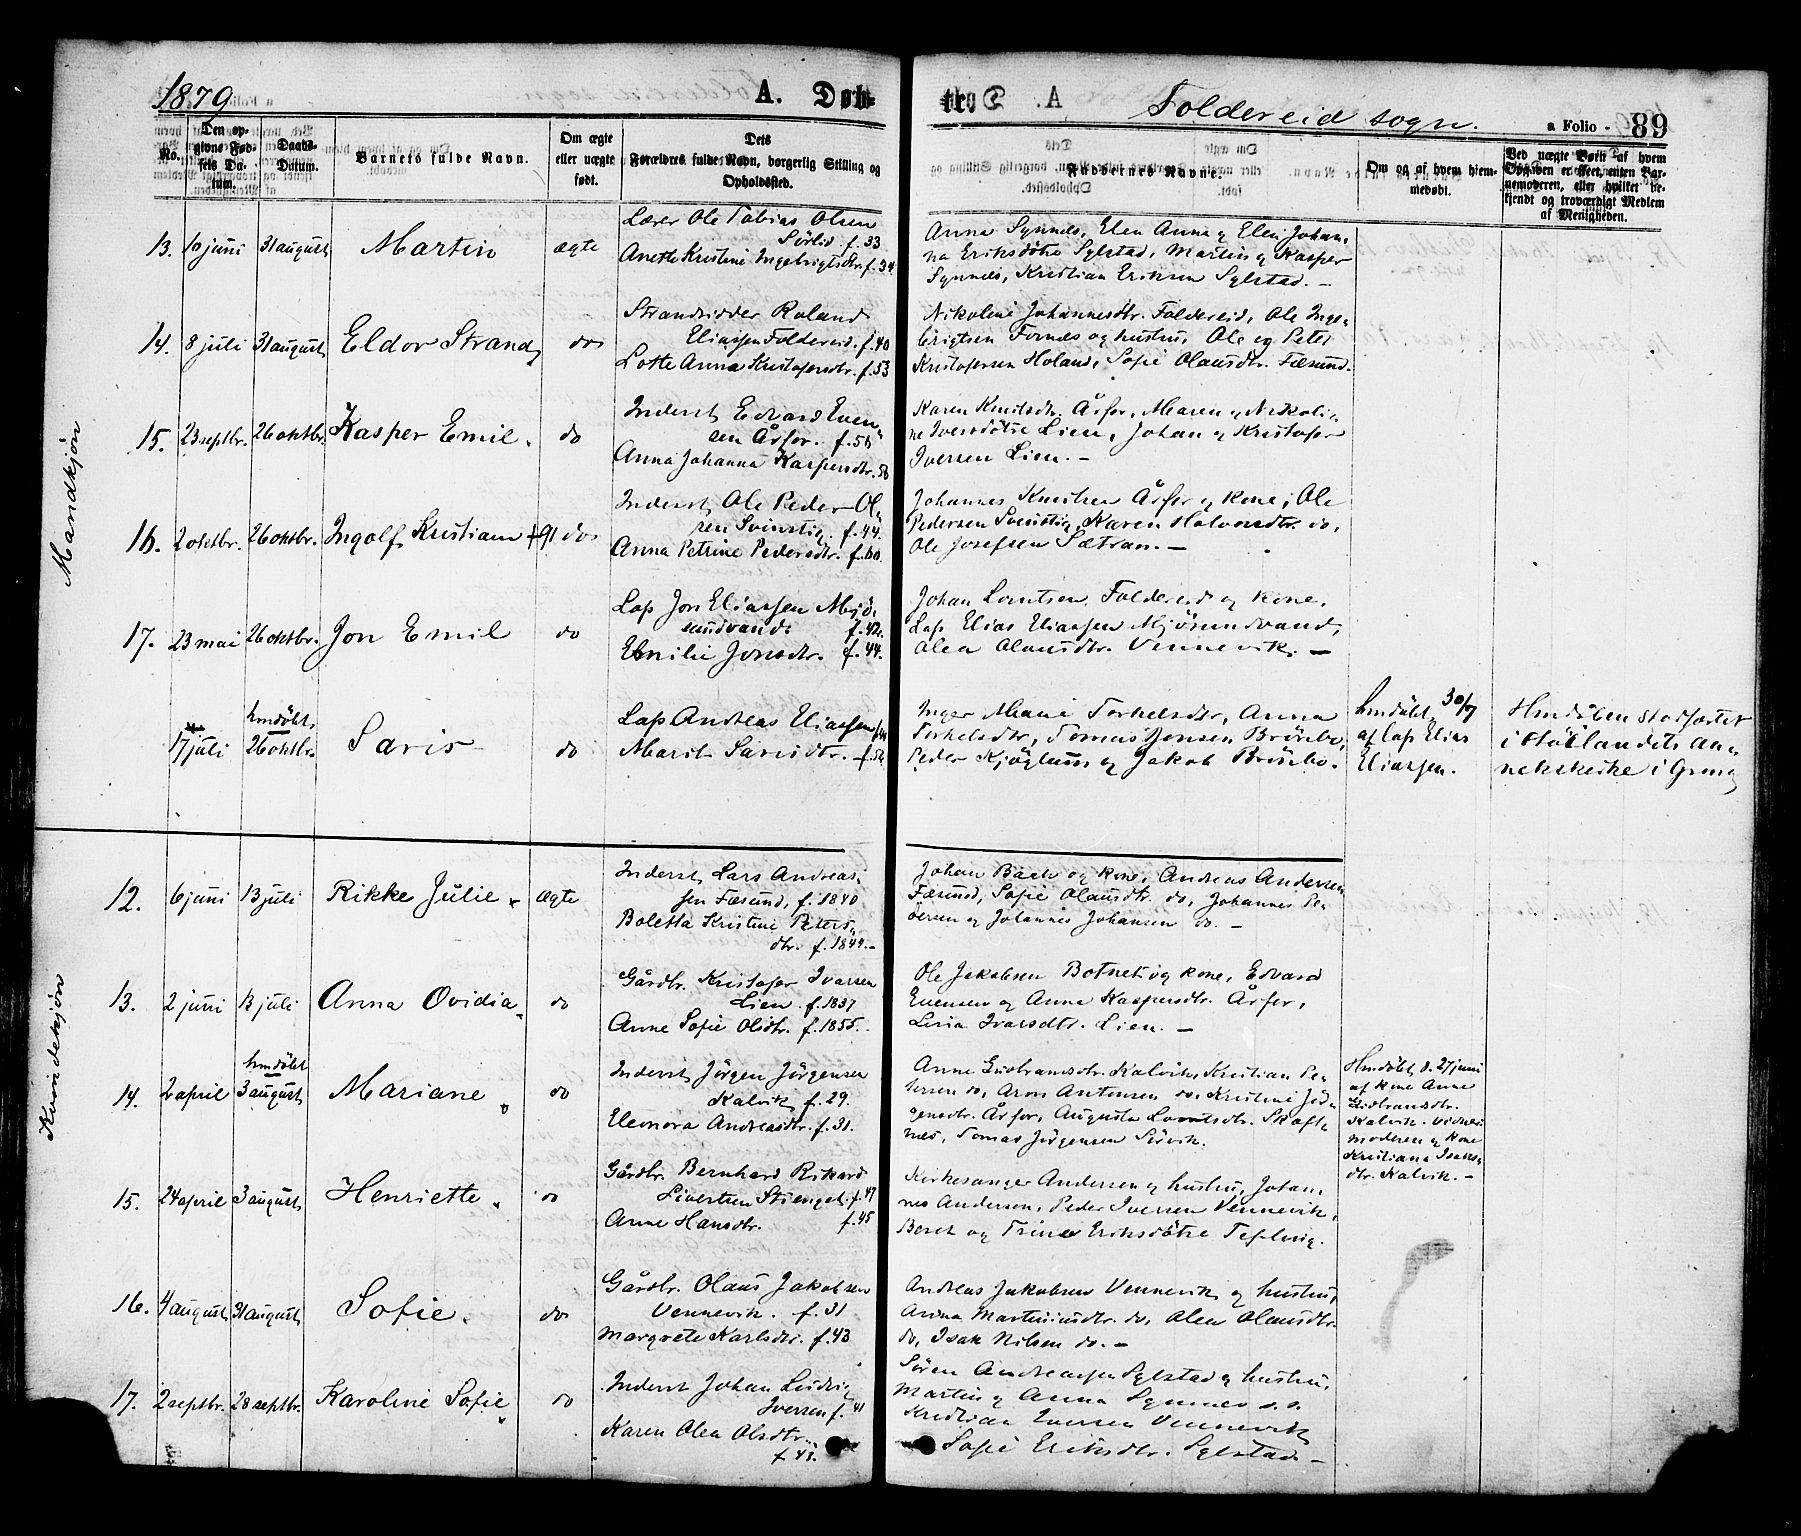 1879
A. Døb-
te.
Foldereid sogn.
a Folio - 89
No.
Den op-
givne Fød-
sels Da-
tum.
Daabs-
Datum.
Barnets fulde Navn.
Om ægte
eller uægte
født.
Dets
Forældres fulde Navn, borgerlig Stilling og
Opholdssted.
Faddernes Navne.
Om og af hvem hjem-
medøbt.
Ved uægte Børn af hvem
Opgaven er skeet, enten Bar-
nemoderen, eller hvilket be-
kjendt og troværdigt Medlem
af Menigheden.
Mandkjøn
13. 10 juni 31 august Martin ægte
Lærer Ole Tobias Olsen
Sörlid f. 33
Anette Kristine Ingebrigtsdtr. f. 34.
Anna Synnes, Elen Anna og Elen Johan-
na Eriksdötre Sylstad, Martin og Kasper
Synnes, Kristian Eriksen Sylstad. -
14. 8 juli 31 august Eldor Strand do
Strandsidder Roland
Eliassen Foldereid. f. 40
Lotte Anna Kristofersdtr. f. 53
Nikoline Johannesdtr. Foldereid, Ole Inge-
brigtsen Fornes og hustru, Ole og Peter
Kristofersen Holand, Sofie Olausdtr. Fæsund.
15. 23 septbr. 26 oktbr. Kasper Emil. do
Inderst Edvard Even-
sen Årfor. f. 56
Anna Johanna Kaspersdtr. 58
Karen Knutsdtr. Årfor, Maren og Nikoli-
ne Iversdötre Lien, Johan og Kristofer
Iversen Lien. -
16. 2 oktbr. 26 oktbr. Ingolf Kristian +91 do
Inderst Ole Peder Ol-
sen Svinstig. f. 44.
Anna Petrine Pedersdtr. f. 60.
Johannes Knutsen Årfor og kone, Ole
Pedersen Svinstig, Karen Halvorsdtr. do,
Ole Josefsen Sætran. -
17. 23 mai 26 oktbr. Jon Emil do
Lap Jon Eliassen Mjö-
sundvand. f. 42.
Emilie Jonsdtr. f. 44.
Johan Lorntsen Foldereid og kone,
Lap Elias Eliassen Mjösundvand,
Olea Olausdtr. Vennevik. -
17 juli hmdöbt 26 oktbr. Saris do
Lap Andreas Eliassen
Marit Sarisdtr. f. 52.
Inger Marie Torkelsdtr, Anna
Torkelsdtr, Tomas Jonsen Brönbo,
Peder Kjöglum og Jakob Brönbo.
hmdöbt 30/7
af Lap Elias
Eliassen.
Hmdåben stadfæstet
i Höilandets an-
nekskirke i Grong
Kvindekjøn
12. 6 juni 13 juli Rikke Julie. ægte
Inderst Lars Andreas-
sen Fæsund, f. 1840
Boletta Kristine Peters-
dtr. f. 1849. -
Johan Bach og kone, Andreas Andersen
Fæsund, Sofie Olausdtr. do, Johannes Pe-
dersen og Johannes Johansen do. -
13. 2 juni 13 juli Anna Ovidia. do
Gårdbr. Kristofer Ivarsen
Lien. f. 1837
Anne Sofie Olsdtr. f. 1855. -
Ole Jakobsen Botnet og kone, Edvard
Evensen og Anna Kaspersdtr. Årfor,
Lina Ivarsdtr. Lien. -
14. 2 april hmdöbt 3 august Mariane. do
Inderst Jörgen Jörgensen
Kalvik f. 29.
Eleonora Andreasdtr. f. 31.
Anne Gudbransdtr. Kalvik, Kristian Pe-
tersen do, Aron Antonsen do, Kristine Jör-
gensdtr. Årfor, Augusta Lorntsdtr. Skaft-
nes, Tomas Jörgensen Sörvik.
Hmdöbt d. 27 juni
af kone Anne
Gudbransdtr.
Kalvik. Vidner:
moderen og kone
Kristiana Isaks-
dtr. Kalvik. -
15. 24 april 3 august Henriette. do
Gårdbr. Bernhard Rikard
Sivertsen Stienget. f. 47
Anne Hansdtr. f. 45
Kirkesanger Andersen og hustru, Johan-
nes Andersen, Peder Iversen Vennevik,
Beret og Trine Eriksdötre Teplingi.
16. 4 august 31 august Sofie. do
Gårdbr. Olaus Jakobsen
Vennevik. f. 31
Margrete Karlsdtr. f. 43
Andreas Jakobsen Vennevik og hustru,
Anna Martiniusdtr. do, Olea Olausdtr.
do, Isak Nilsen do. -
17. 2 septbr. 28 septbr. Karoline Sofie. do
Inderst Johan Ludvig
Iversen f. 41
Karen Olea Olsdtr.
f. 43.
Sören Andreassen Sylstad og hustru,
Martin og Anna Synnes s.s.
Kristian Iversen Vennevik
Sofie Eriksdtr. Sylstad. -